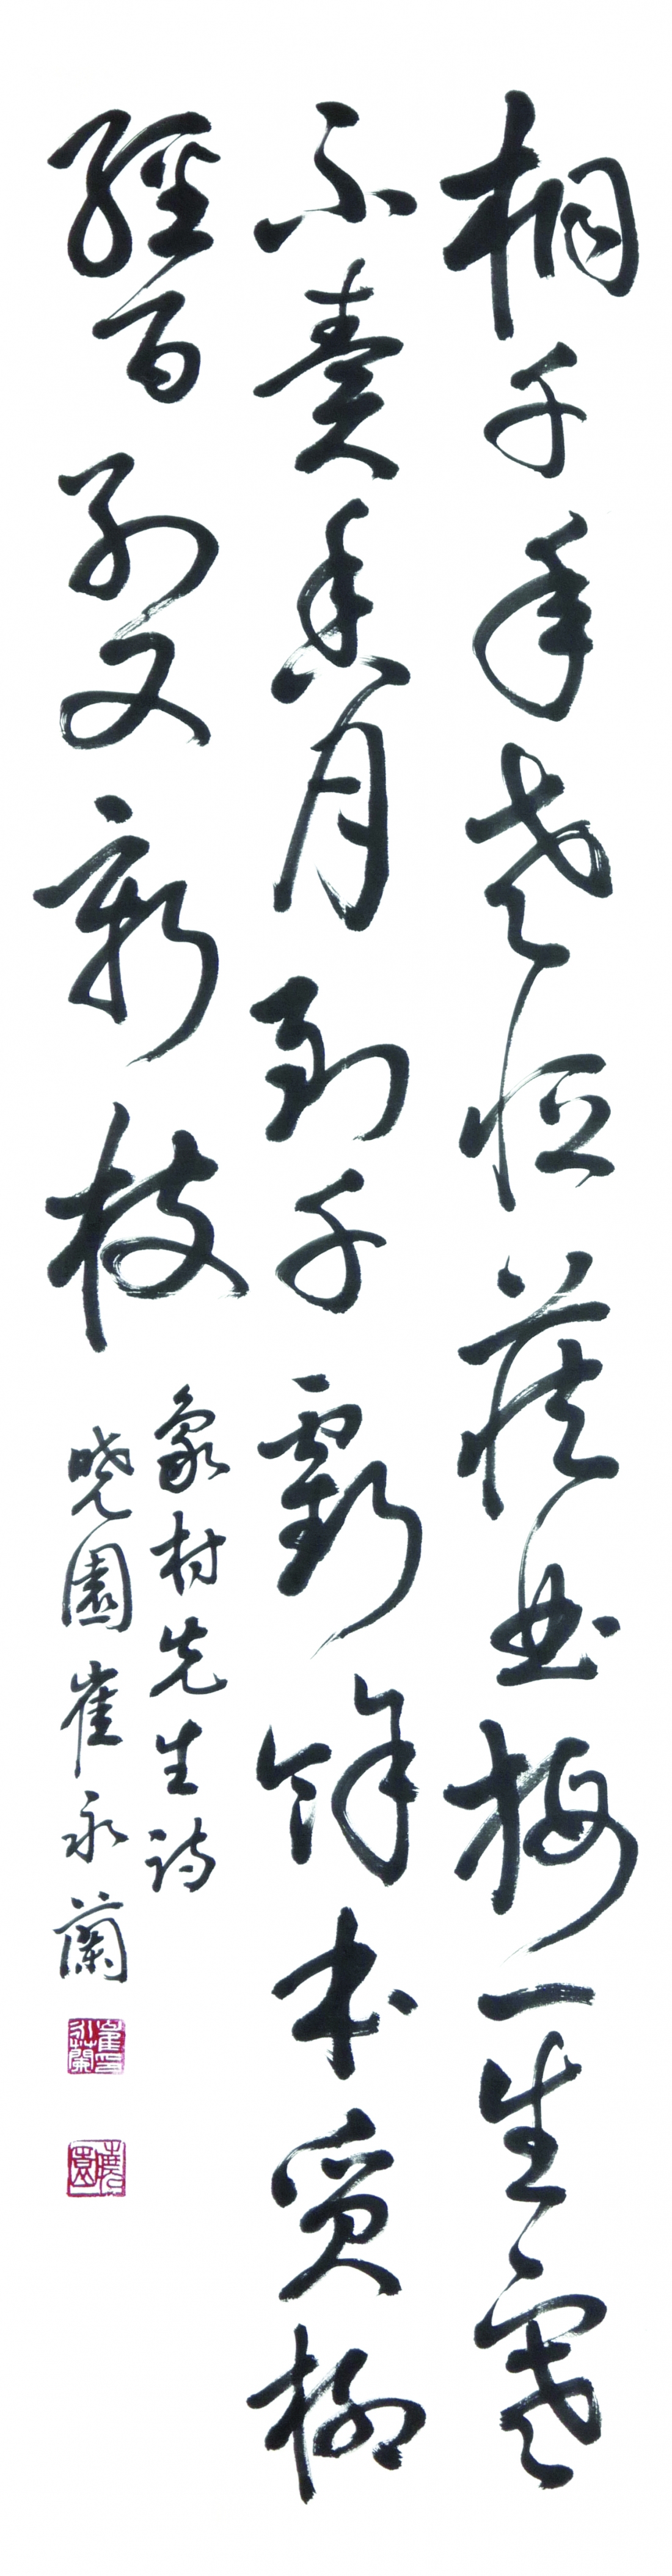 桐千年老恒藏曲梅一生寒
不賣香月到千虧餘本質柳
經百別又新枝
象村先生詩
曉園崔永蘭
崔印永蘭
曉園